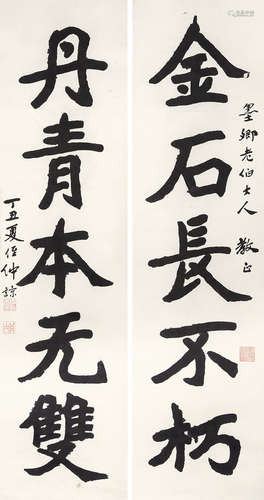 墨卿老伯大人 教正
金石長不朽
丹青本无雙
丁丑夏 侄仲諒